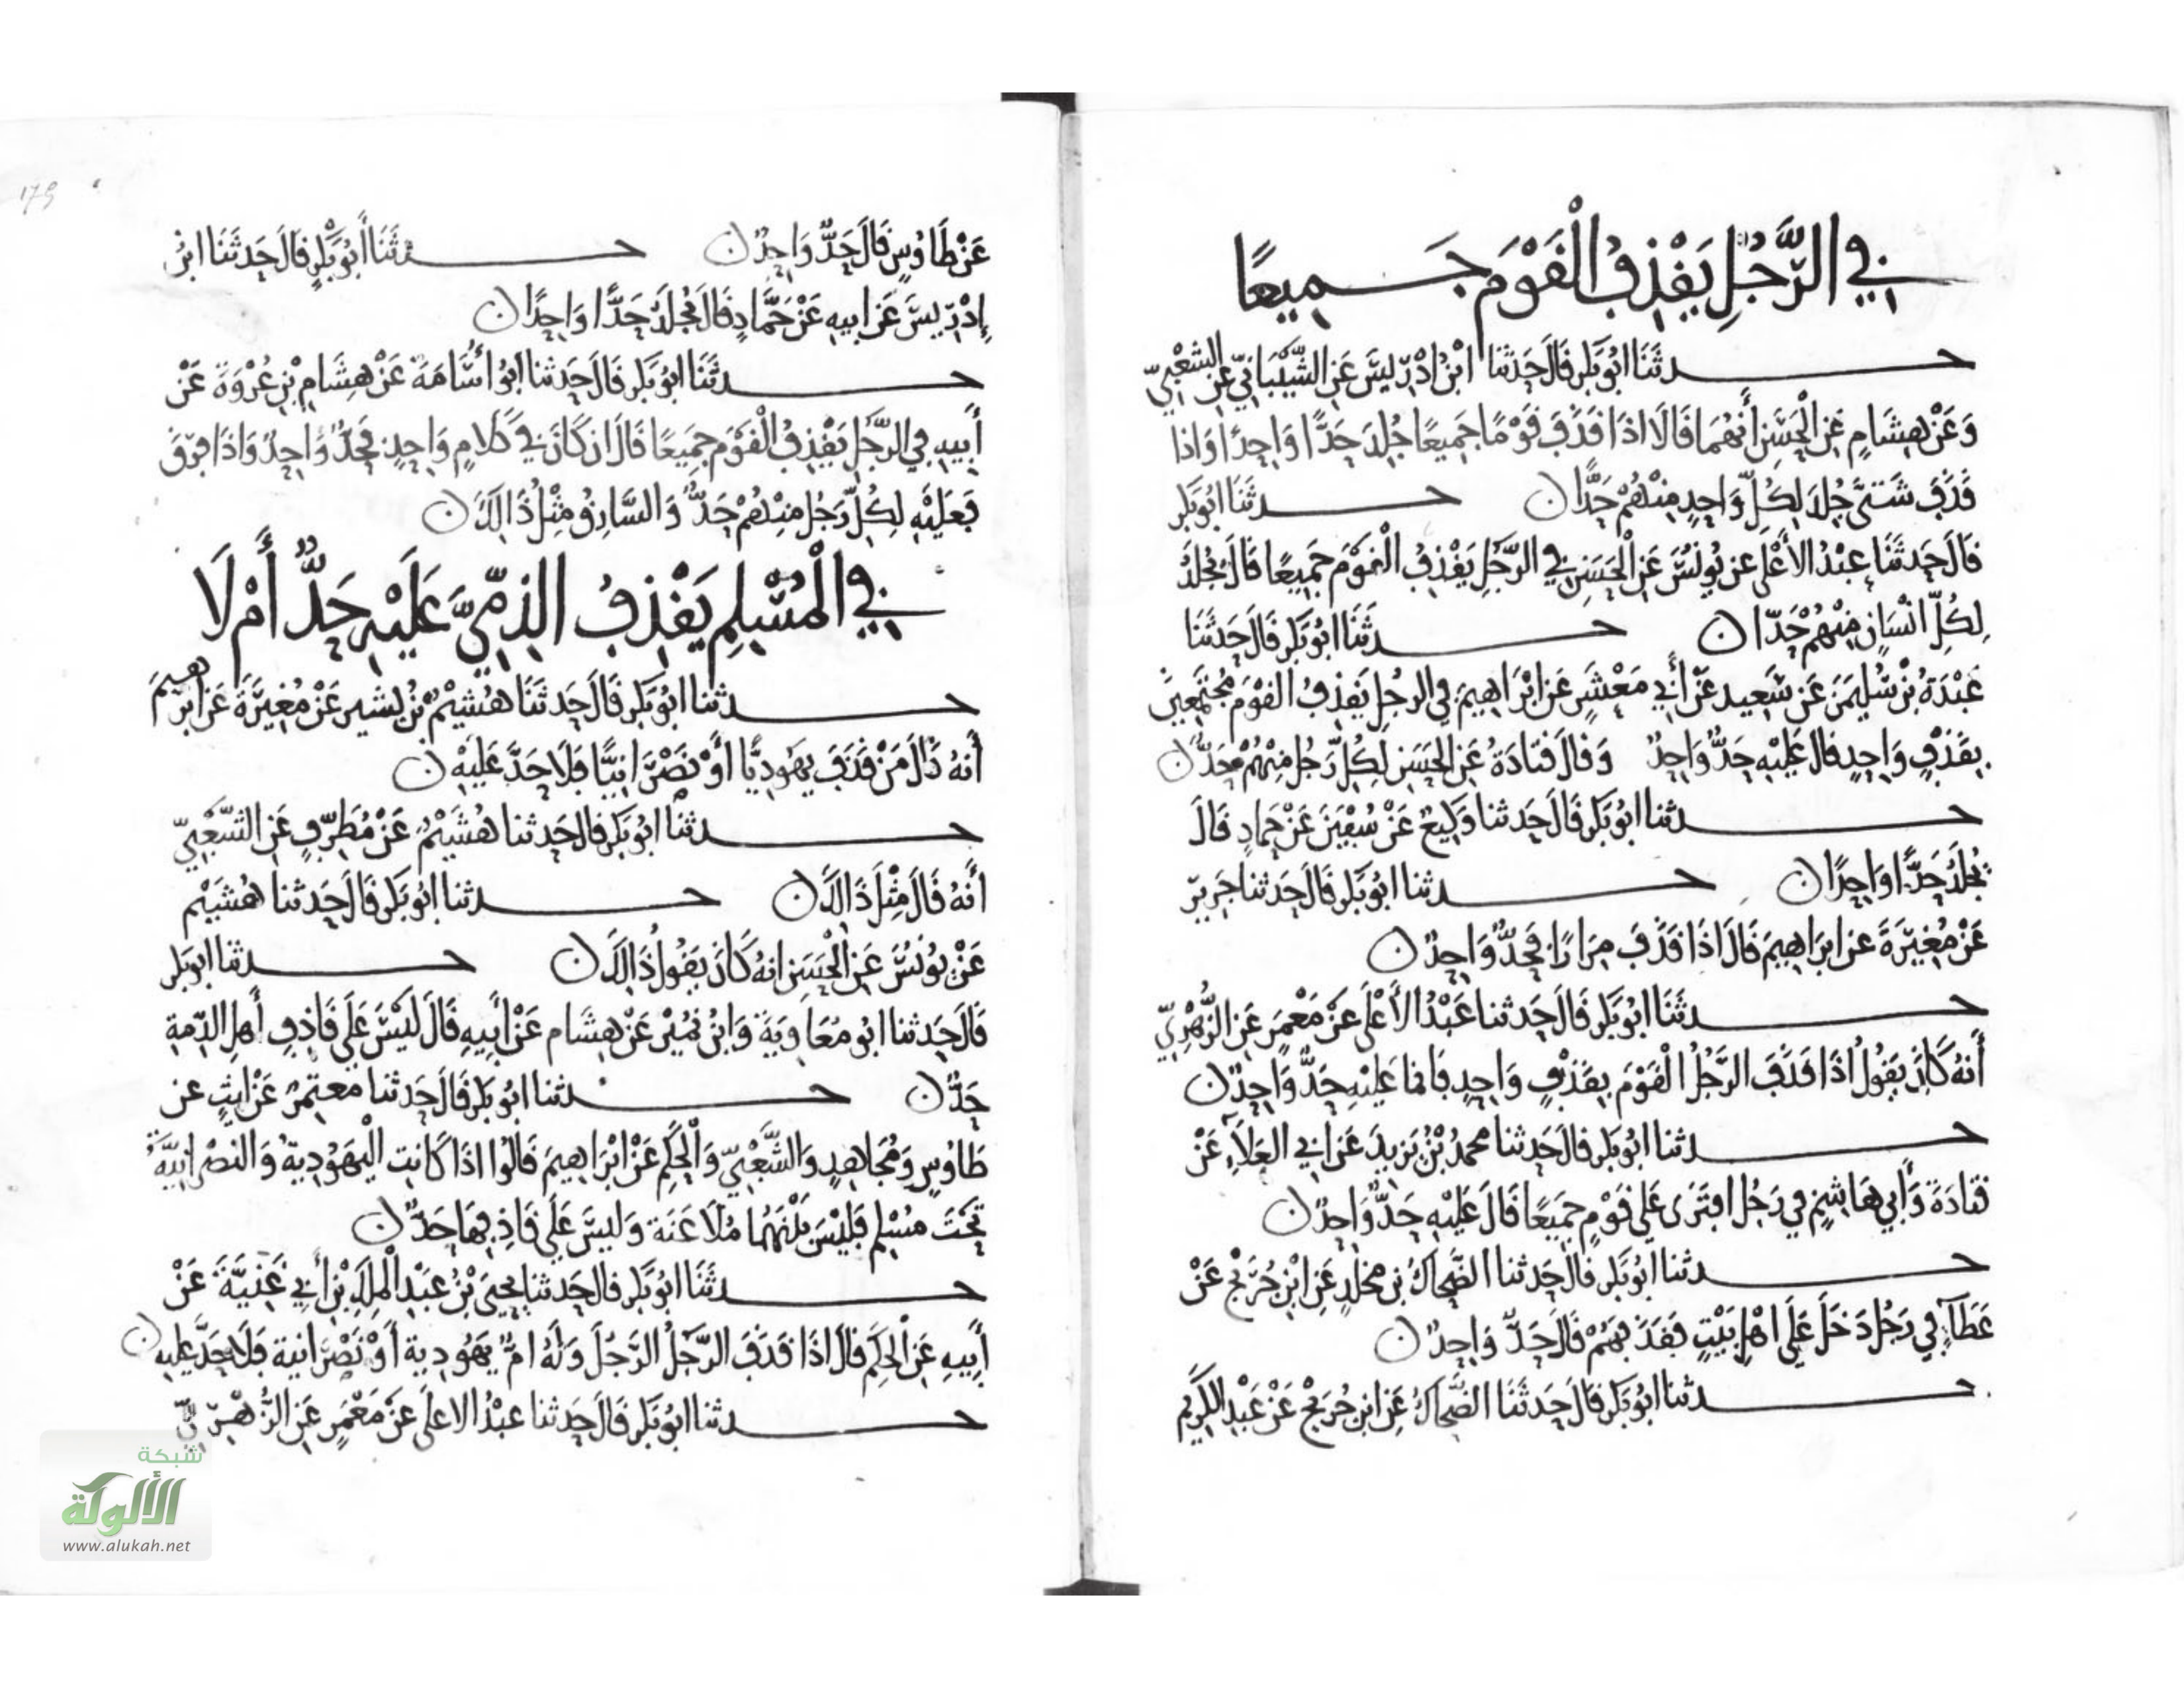 في الرَّجُلِ يَقْذِفُ الْقَوْمَ جَمِيعًا
حدثَنَا ابُو بَكر قَالَ حَدثنَا ابْنُ ادْرِيسَ عَنِ الشَّيْبَانِيّ عَنِ الشَّعْبِيّ
وَعَنْ هِشَامٍ عَنِ الْحَسَنِ أَنهُمَا قَالَا اذَا قَذَفَ قَوْمًا جَمِيعًا جُلِدَ حَدًّا وَاحِدًا وَاذا
قَذَفَ شَتَّى جُلدَ لِكُلّ وَاحِدٍ مِنْهُمْ حَدًّا ن حدثَنَا ابُو بَكر
قَالَ حَدثَنَا عبْدُ الأَعْلَى عن يُونُسَ عَنِ الْحَسَنِ فِي الرَّجُلِ يَقْذِفُ الْقَوْمَ جَمِيعًا قَالَ يُجْلَدُ
لِكُلِّ انْسَانٍ مِنْهُمْ حَدّا ن حدثَنَا ابُو بَكر قَالَ حَدثَنَا
عَبْدَةُ بْنُ سُلَيْمَنَ عَن سَعِيد عَنْ أَبِي مَعْشَرٍ عَن ابْرَاهِيمَ فِي الرجُلِ يَقذِفُ القَوْمَ مُجْتَمِعِينَ
بِقَذْفٍ وَاحِدٍ قال عَلَيْهِ حَدٌّ وَاحِدٌ وَقَالَ قتَادَةُ عَنِ الحَسَنِ لِكُلِّ رَجُل مِنْهُمْ حَدٌّ ن
حدثنا ابُو بَكر قَالَ حَدثنا وَكِيعٌ عَنْ سُفْيَنَ عَنْ حَمادٍ قَالَ
يُجْلَدُ حَدًّا وَاحِدًا ن حدثنا ابُو بَكر قَالَ حَدثنا جَرِير
عَنْ مُغِيرَةَ عن ابرَاهِيمَ قَالَ اذَا قَذَفَ مِرَارًا فَحَدٌّ وَاحِدٌ ن
حدثَنَا ابُو بَكر قَالَ حَدثنا عَبْدُ الأَعْلَى عَنْ مَعْمَرٍ عَنِ الزُّهْرِيّ
أَنهُ كَانَ يَقُولُ اذَا قَذَفَ الرَّجُلُ الْقَوْمَ بِقَذْفٍ وَاحِدٍ فَانما عَلَيْهِ حَدٌّ وَاحِدٌ ن
حدثنا ابُو بَكر قالَ حَدثنا محمدُ بْنُ يَزِيدَ عَنْ ابِي العَلَاءِ عَنْ
قتادَةَ وَأَبِي هَاشِمٍ فِي رَجُلٍ افتَرَى عَلَى قَوْمٍ جَمِيعًا قَالَ عَلَيْهِ حَدٌّ وَاحِدٌ ن
حدثنا ابُو بَكر قَالَ حَدثنا الضَّحاكُ بن مخلدٍ عَنِ ابْنِ جُرَيْجٍ عَنْ
عَطَآءٍ فِي رَجُلٍ دَخَلَ عَلَى اهْلِ بَيْتٍ فَقَذَفهُمْ قَالَ حَدٌّ وَاحِدٌ ن
حدثنا ابُو بَكر قَالَ حَدثَنَا الضَّحاكُ عَنِ ابن جُرَيْجٍ عَنْ عَبْدِ الكَرِيمِ
عَنْ طَاوُسٍ قَالَ حَدٌّ وَاحِدٌ ن حدثَنَا أَبُو بَكْرٍ قَالَ حَدثَنَا ابنُ
إِدْرِيسَ عَنْ ابيهِ عَنْ حَمَّادٍ قَالَ يُجْلَدُ حَدًّا وَاحِدًا ن
حدثَنَا ابُو بَكر قَالَ حَدثنا ابُو أُسَامَةَ عَنْ هِشَامِ بْنِ عُرْوَةَ عَنْ
أَبِيهِ فِي الرَّجُلِ يَقْذِفُ الْقَوْمَ جَمِيعًا قَالَ ان كَانَ فِي كَلَامٍ وَاحِدٍ فَحَدٌّ وَاحِدٌ وَاذَا فرّقَ
فَعَلَيْهِ لِكُلِّ رَجُلٍ مِنْهُمْ حَدٌّ وَالسَّارِقُ مِثْلُ ذَالِكَ ن
فِي الْمُسْلِمِ يَقْذِفُ الذِمِّيَّ عَلَيْهِ حَدٌّ أَمْ لَا
حدثنا ابُو بَكر قَالَ حَدثَنَا هُشَيْمُ بْنُ بَشير عَنْ مُغِيرَةَ عَن ابرهيمَ
أَنهُ قَالَ مَنْ قَذَفَ يَهُودِيًّا أَوْ نَصْرَانِيًّا فَلَا حَدَّ عَلَيْهِ ن
حدثنا ابُو بَكر قال حَدثنا هُشَيْمٌ عَنْ مُطَرِّفٍ عَنِ الشَّعْبِيّ
أَنهُ قَالَ مِثْلَ ذَالِكَ ن حدثنا ابُو بَكر قَالَ حَدثنا هُشَيْم
عَنْ يُونُسَ عَنِ الْحَسَنِ انهُ كَانَ يَقُولُ ذَالِكَ ن حدثنا ابو بَكر
قَالَ حَدثنا ابُو مُعَاوِيَةَ وَابْنُ نُمَيْر عَنْ هِشَام عَنْ أَبِيهِ قَالَ لَيْسَ عَلَى قَاذِفِ أَهلِ الذِّمةِ
حَدٌّ ن حدثنا ابُو بَكر قَالَ حَدثنا معتمرٌ عَنْ ليْثٍ عن
طَاوُسٍ وَمُجَاهِدٍ وَالشَّعْبِيّ وَالْحَكَمِ عَنْ ابْرَاهِيمَ قَالُوا اذَا كَانت الْيَهُودِيةُ وَالنصْرَانِيَّةُ
تَحْتَ مُسْلِمٍ فَلَيْسَ بَيْنَهُمَا مُلَاعَنَة وَلَيسَ عَلَى قَاذِفِهَا حَدٌّ ن
حدثَنَا ابُو بَكر قالَ حَدثنا يَحْيَى بْنُ عَبْدِ الْمَلِكِ بْنِ أَبِي غَنِيَّةَ عَنْ
أَبِيهِ عَنِ الْحَكَمِ قَالَ اذَا قَذَفَ الرَّجُلُ الرَّجُلَ وَلَهُ امٌّ يَهُودِية أَوْ نَصْرَانية فَلَا حَدَّ عليه ن
حدثنا ابُو بَكر قَالَ حَدثنا عبْدُ الاعلَى عَنْ مَعْمَرٍ عَنِ الزُّهْرِيّ
شبكة
الألوكة
www.alukah.net